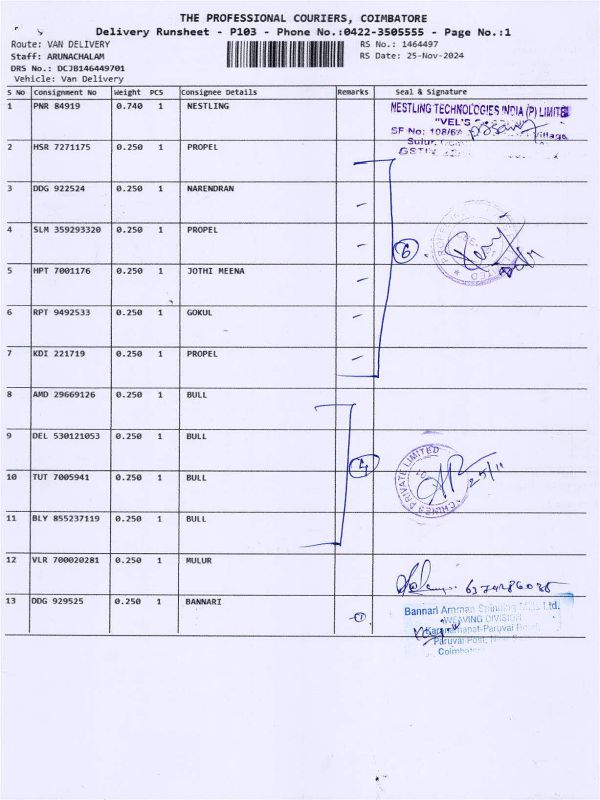 THE PROFESSIONAL COURIERS, COIMBATORE
Delivery Runsheet - P103 - Phone No.:0422-3505555 - Page No.:1
Route: VAN DELIVERY RS No.: 1464497
Staff: ARUNACHALAM RS Date: 25-Nov-2024
DRS No.: DCJB146449701
Vehicle: Van Delivery
S No Consignment No Weight PCS Consignee Details Remarks Seal & Signature
1 PNR 84919 0.740 1 NESTLING
NESTLING TECHNOLOGIES INDIA (P) LIMITED
"VEL'S
SF No: 108/6 Village
Sulur,
GSTIN
2 HSR 7271175 0.250 1 PROPEL
3 DDG 922524 0.250 1 NARENDRAN
4 SLM 359293320 0.250 1 PROPEL
6
5 HPT 7001176 0.250 1 JOTHI MEENA
6 RPT 9492533 0.250 1 GOKUL
7 KDI 221719 0.250 1 PROPEL
8 AMD 29669126 0.250 1 BULL
9 DEL 530121053 0.250 1 BULL
4 PRIVATE LIMITED 25/11
10 TUT 7005941 0.250 1 BULL
11 BLY 855237119 0.250 1 BULL
12 VLR 700020281 0.250 1 MULUR
13 DDG 929525 0.250 1 BANNARI
Bannari Amman Spinning Mills Ltd.
WEAVING DIVISION
Paruvai Post,
Coimbatore